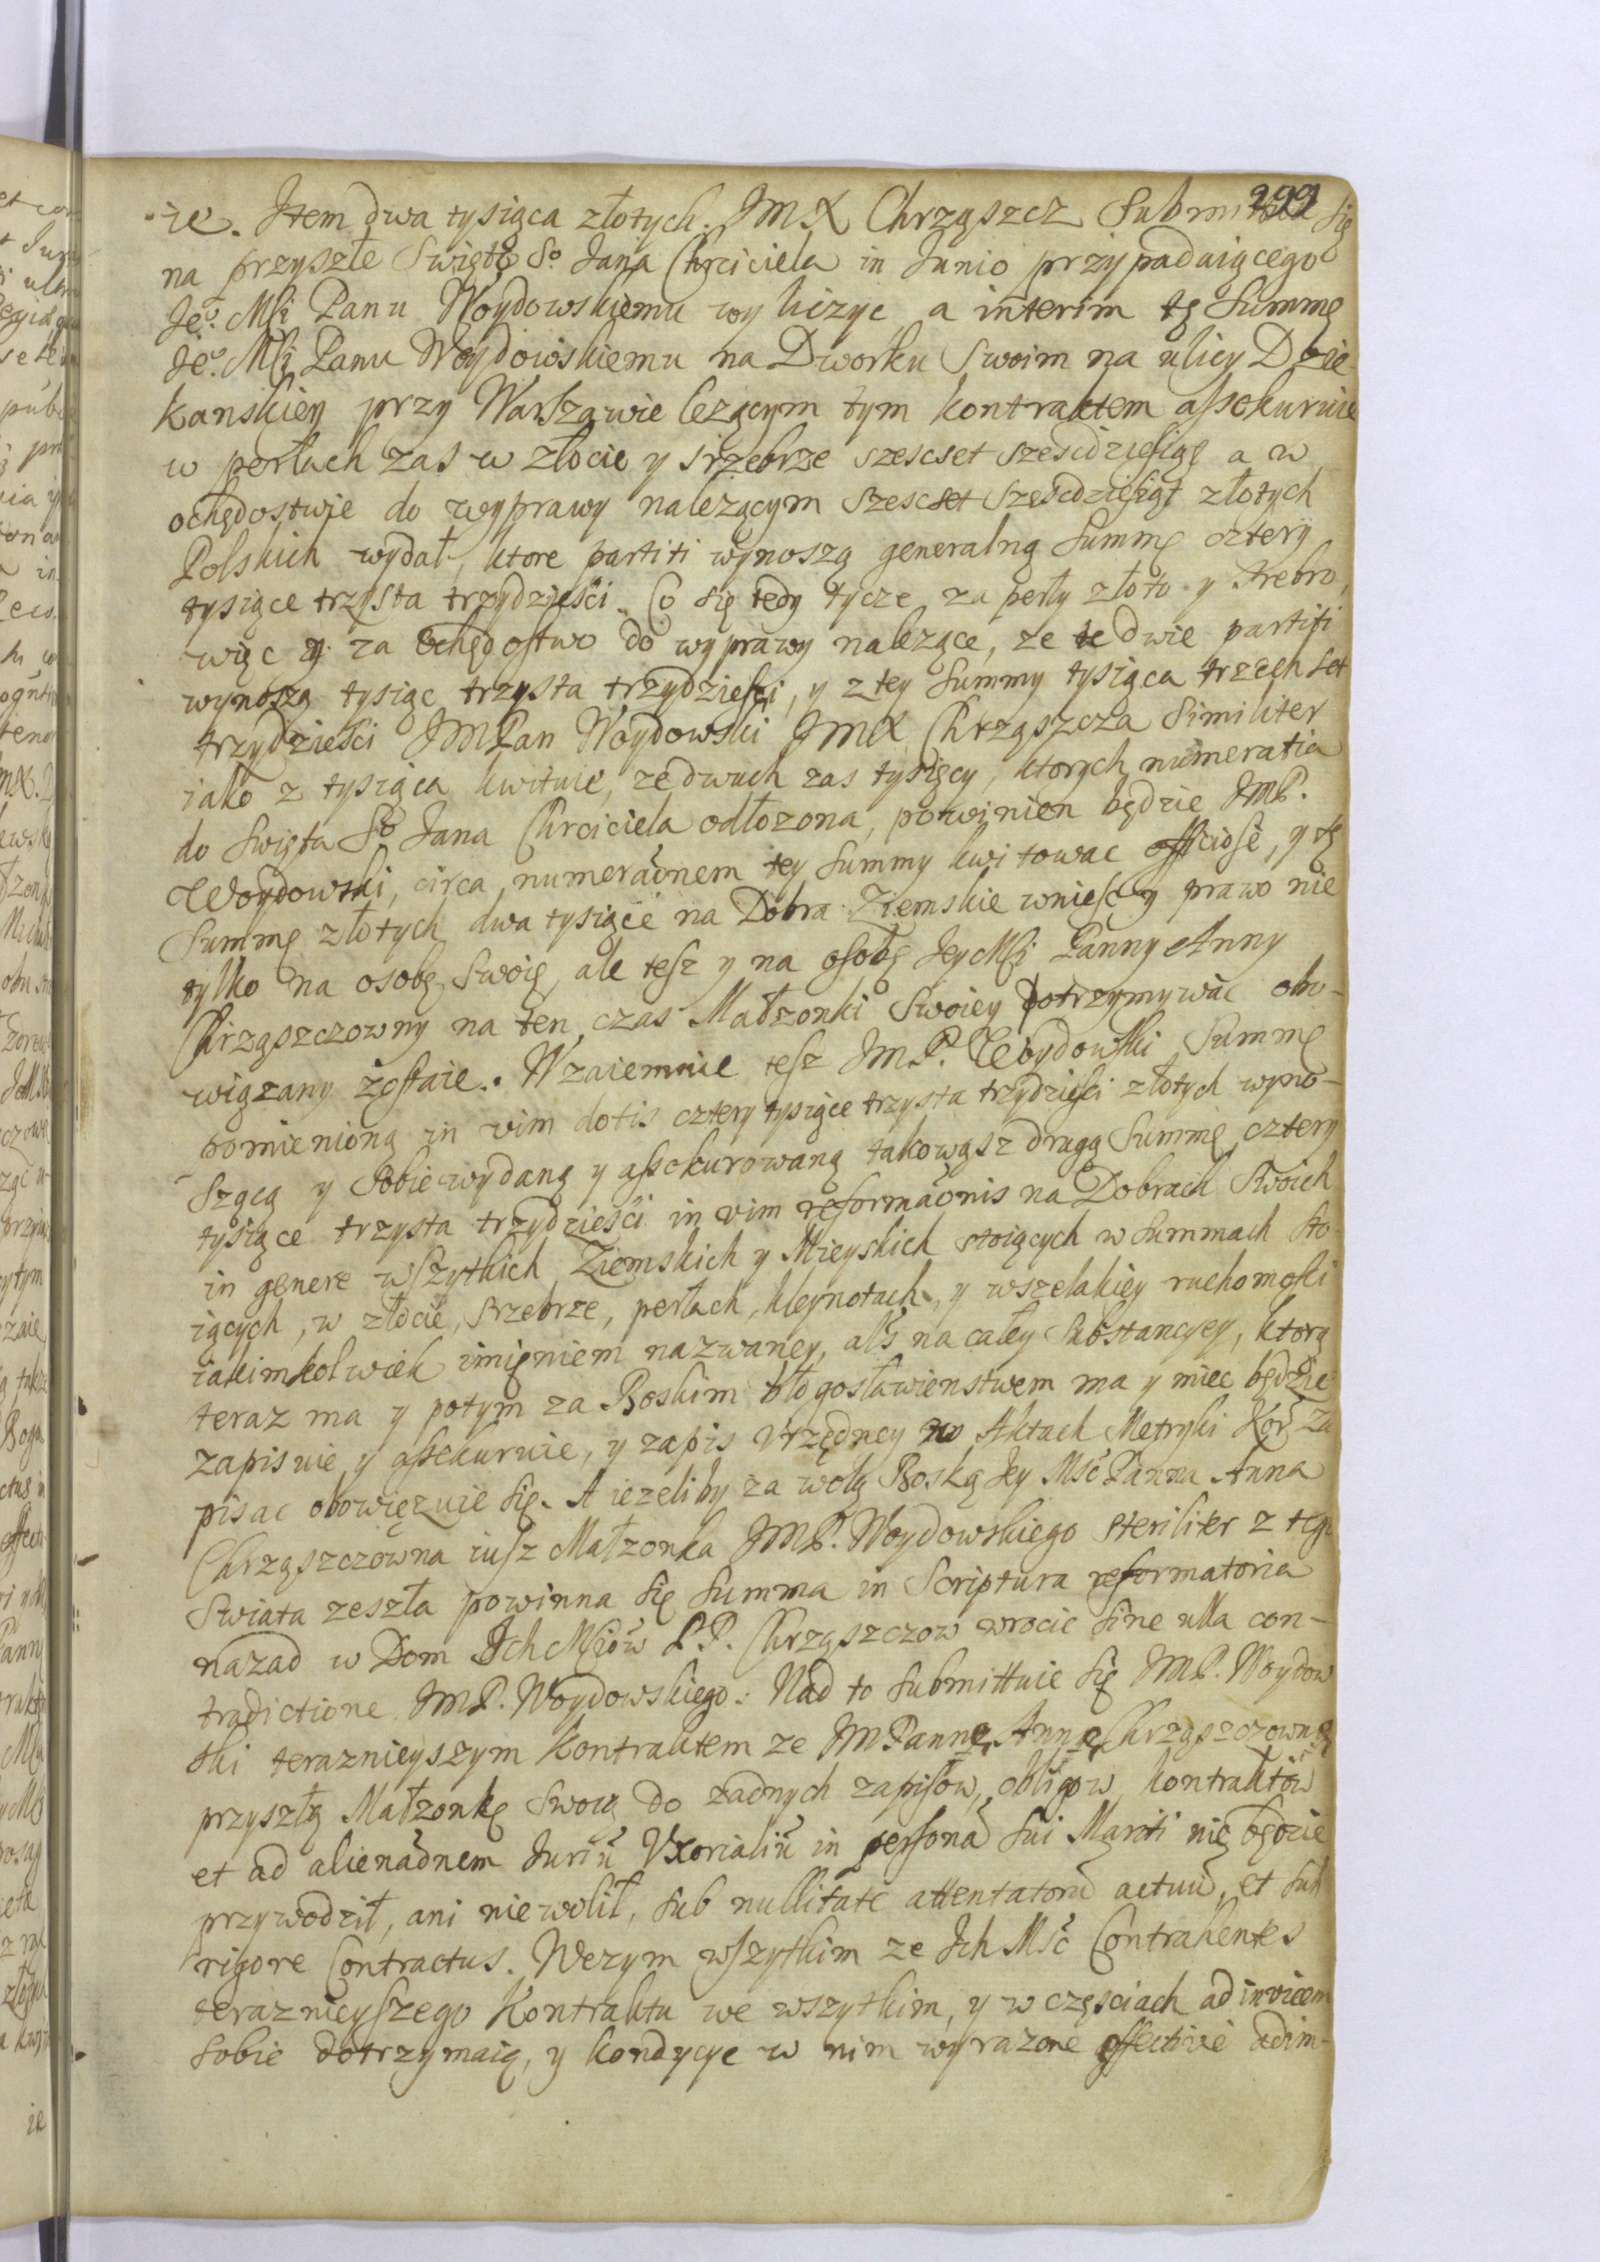 299
-ie. Item dwa tysiąca złotych. JMX Chrząszcz Submittuie się
na przyszłe Swięto So. Jana Chrciciela in Junio przypadaiącego
Jeo. Mści Panu Woydowskiemu wyliczyc, a interim tę Summę
Jeo. Mści Panu Woydowskiemu na Dworku Swoim na ulicy Dzie-
kanskiey przy Warszawie lezącym tym kontraktem assekuruie
w perłach zas w złocie y srzebrze szescset szescdziesiąt a w
ochędostwie do wyprawy nalezącym szescset szescdziesiąt złotych
Polskich wydał, ktore partiti wynoszą generalną Summę cztery
tysiące trzysta trzydziesci. Co się tedy tycze za perły złoto y srebro,
więc y za Ochędostwo do wyprawy nalezące, ze te dwie partiti
wynoszą tysiąc trzysta trzydziesci, y z tey Summy tysiąca trzech set
trzydziesci JMPan Woydowski JMX Chrząszcza Similiter
iako z tysiąca kwituie, ze dwuch zas tysięcy, ktorych numeratia
do Swięta So Jana Chrciciela odłozona, powinien będzie JMP.
Woydowski, circa numeraõnem tey Summy kwitowac officiose, y tę
Summę złotych dwa tysiące na Dobra Ziemskie wniesc y prawo nie
tylko na osobę Swoię, ale tesz y na osobę Jey Mści Panny Anny
Chrząszczowny na ten czas Małzonki Swoiey otrzymywac obo-
wiązany zostaie. Wzaiemnie tesz JMP. Woydowski Summę
pomienioną in vim dotis cztery tysiące trzysta trzydziesci złotych wyno-
szącą y Sobie wydaną y assekurowaną takowąsz drugą Summę cztery
tysiące trzysta trzydziesci in vim reformaõnis na Dobrach Swoich
in genere wszytkich Ziemskich y Mieyskich stoiących w Summach sto-
iących, w złocie, srzebrze, perłach, kleynotach, y wszelakiey ruchomosci
iakimkolwiek imięniem nazwaney, als na całey Substancyey, ktorą
teraz ma y potym za Boskim błogosławienstwem ma y miec będzie
zapisuie y assekuruie, y zapis Vrzędney w Aktach Metryki Kor. za
pisac obowięzuie się. A iezeliby za wolą Boską Jey Msć Panna Anna
Chrząszczowna iusz Małzonka JMP. Woydowskiego steriliter z tego
Swiata zeszła powinna się Summa in Scriptura reformatoria
nazad w Dom Ich Mściow P.P. Chrząszczow wrocic sine ulla con-
tradictione JMP. Woydowskiego. Nad to Submittuie się JMP. Woydow
ski teraznieyszym Kontraktem ze JMPannę Annę Chrząszczownę
przyszłą Małzonkę Swoię do zadnych zapisow, obligow, kontraktow
et ad alienaõnem Juriũ Vxorialiũ in persona sui Mariti nie będzie
przywodził, ani niewolił, sub nullitate attentatorũ actuũ, et sub
rigore Contractus. Wczym wszytkim ze Ich Msć Contrahentes
teraznieyszego Kontraktu we wszytkim, y w częsciach ad invicem
sobie dotrzymaią, y kondycye w nim wyrazone effective adim-